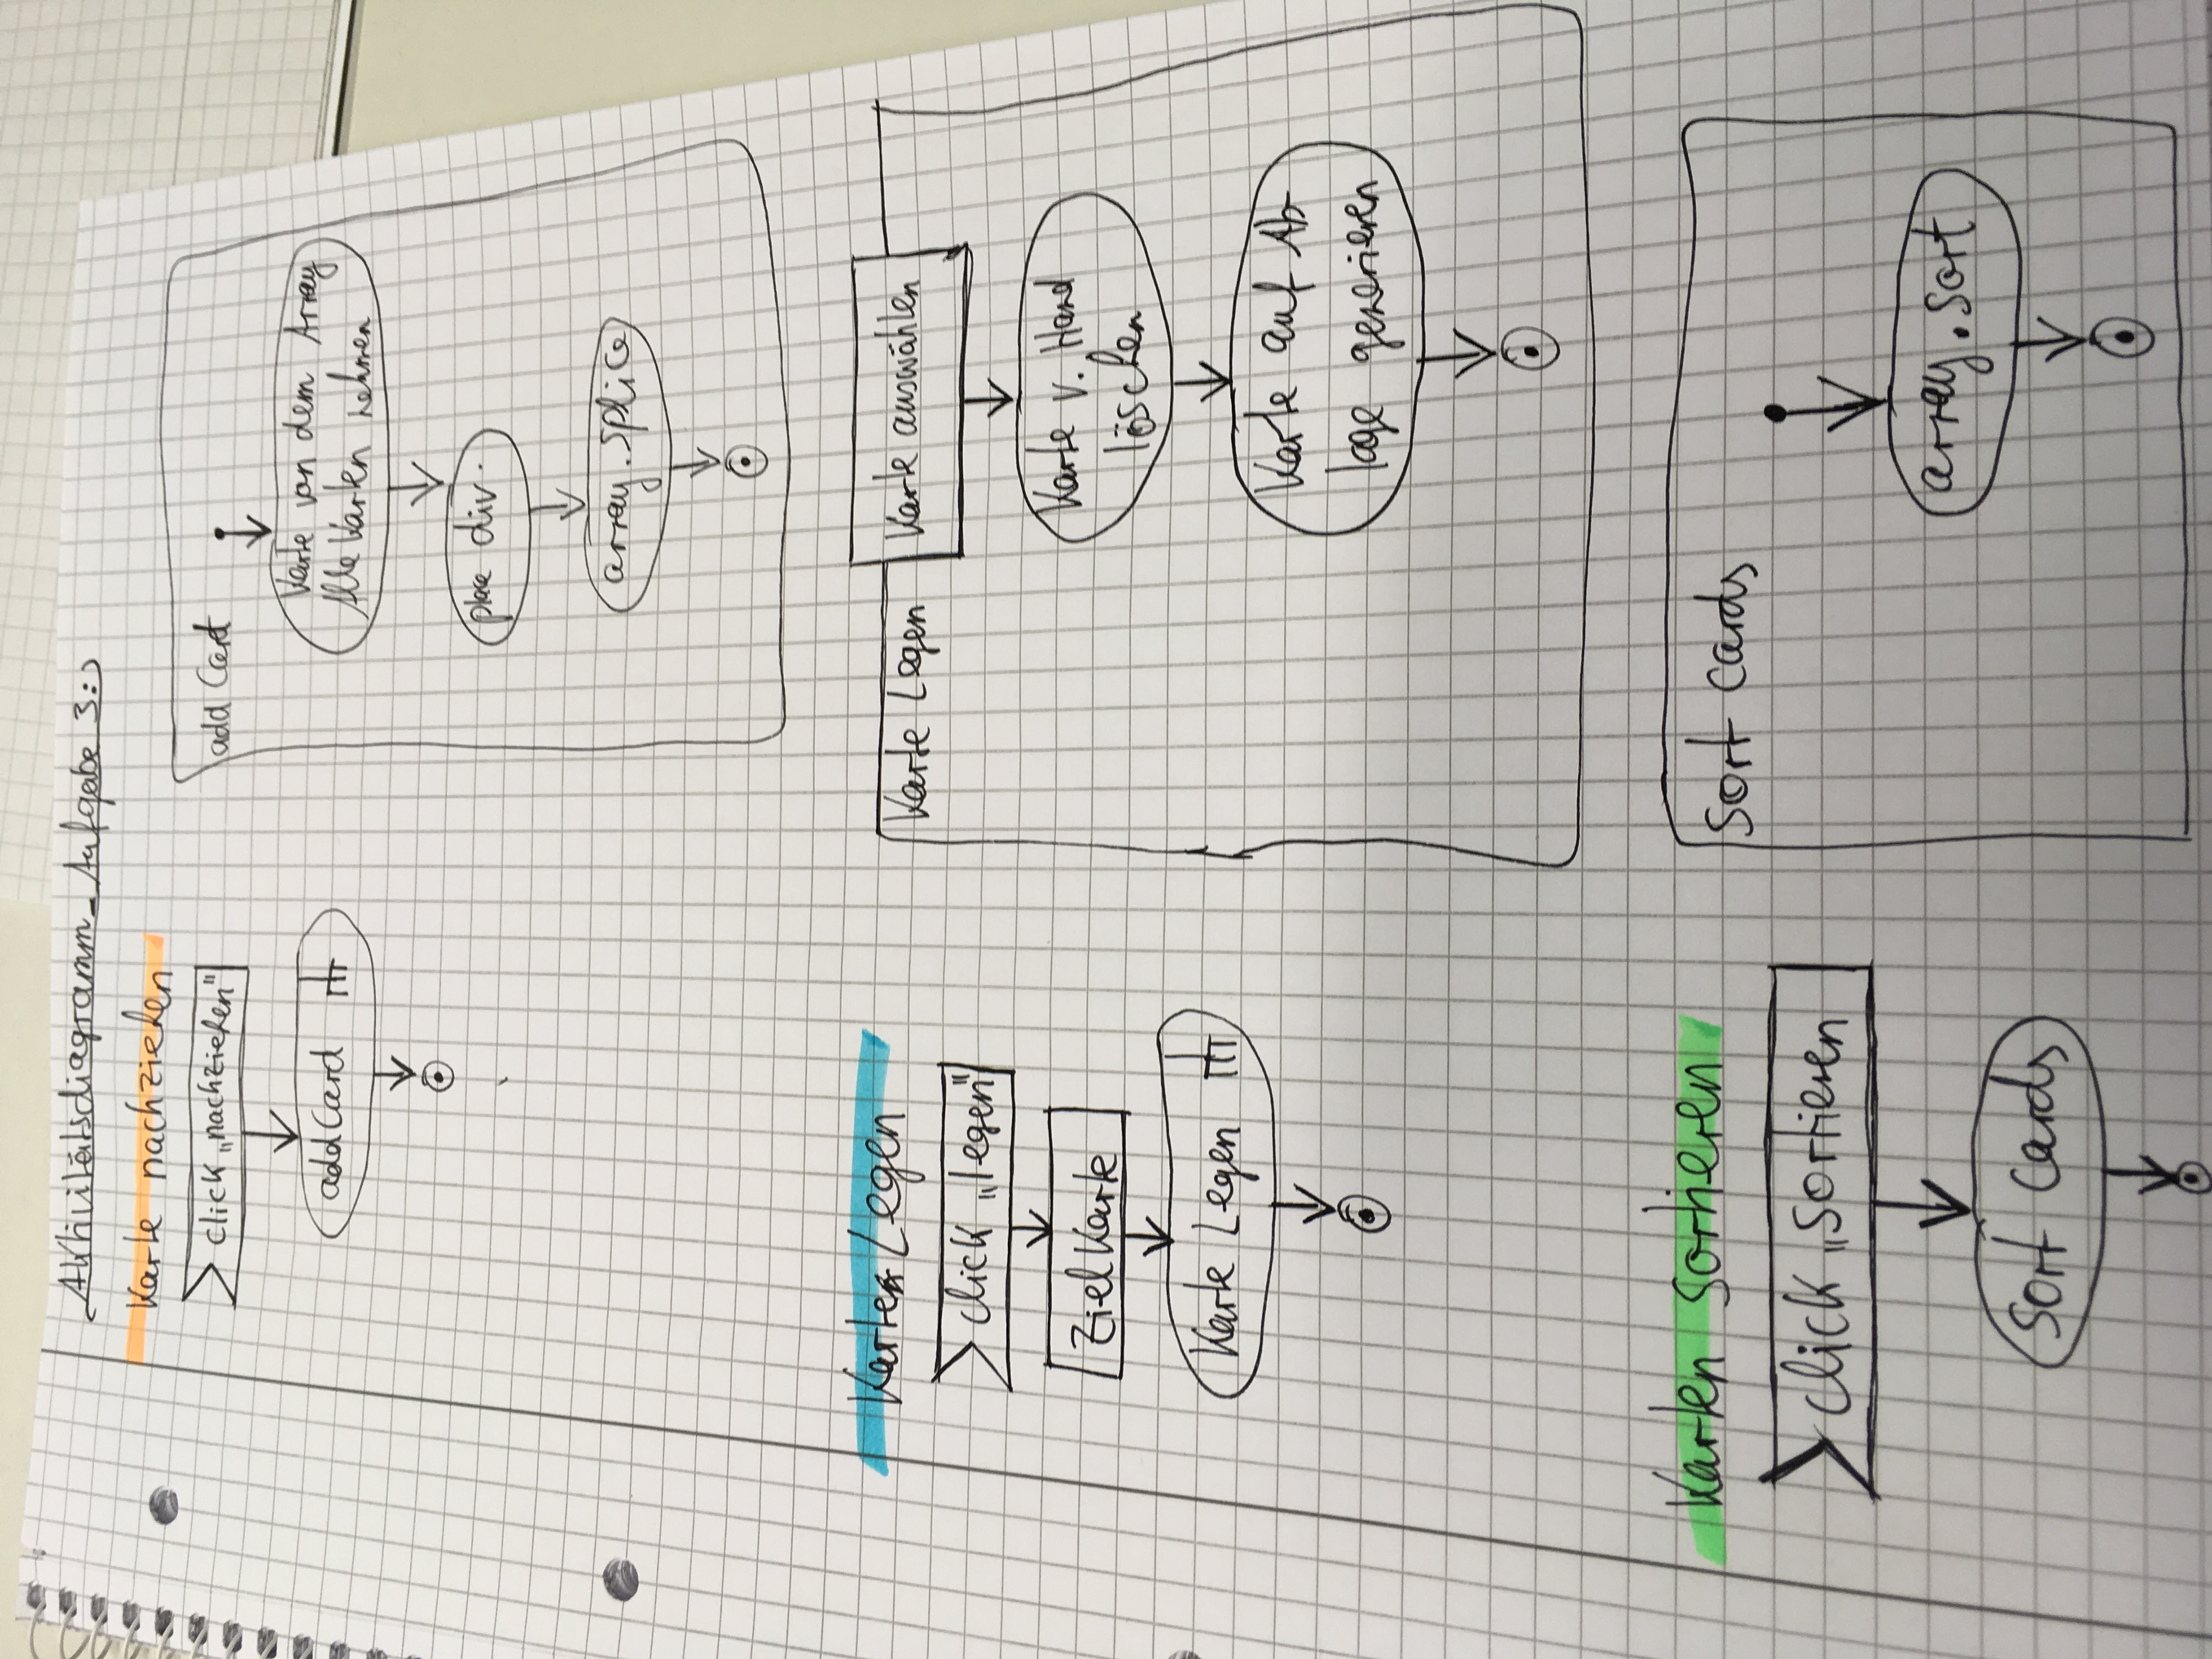 Aktivitätsdiagramm - Aufgabe 3:)
Karte nachziehen
click „nachziehen"
addCard
add Card
Karte von dem Array
Alle Karten nehmen
place div.
array.splice
Karten Legen
click „legen"
Zielkarte
Karte Legen
Karte Legen
Karte auswählen
Karte v. Hand
löschen
Karte auf Ab-
lage generieren
Karten sortieren
click „sortieren
sort cards
sort cards
array.sort